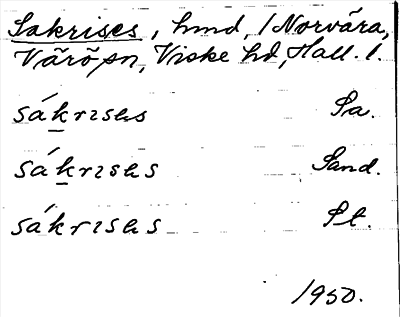 Sakrises, hmd, /Norvära,
Värö sn, Viske hd, Hall. l.
sákrɪsɘs Sa.
sákrɪsɘs Sand.
sákrɪsɘs St.
1950.